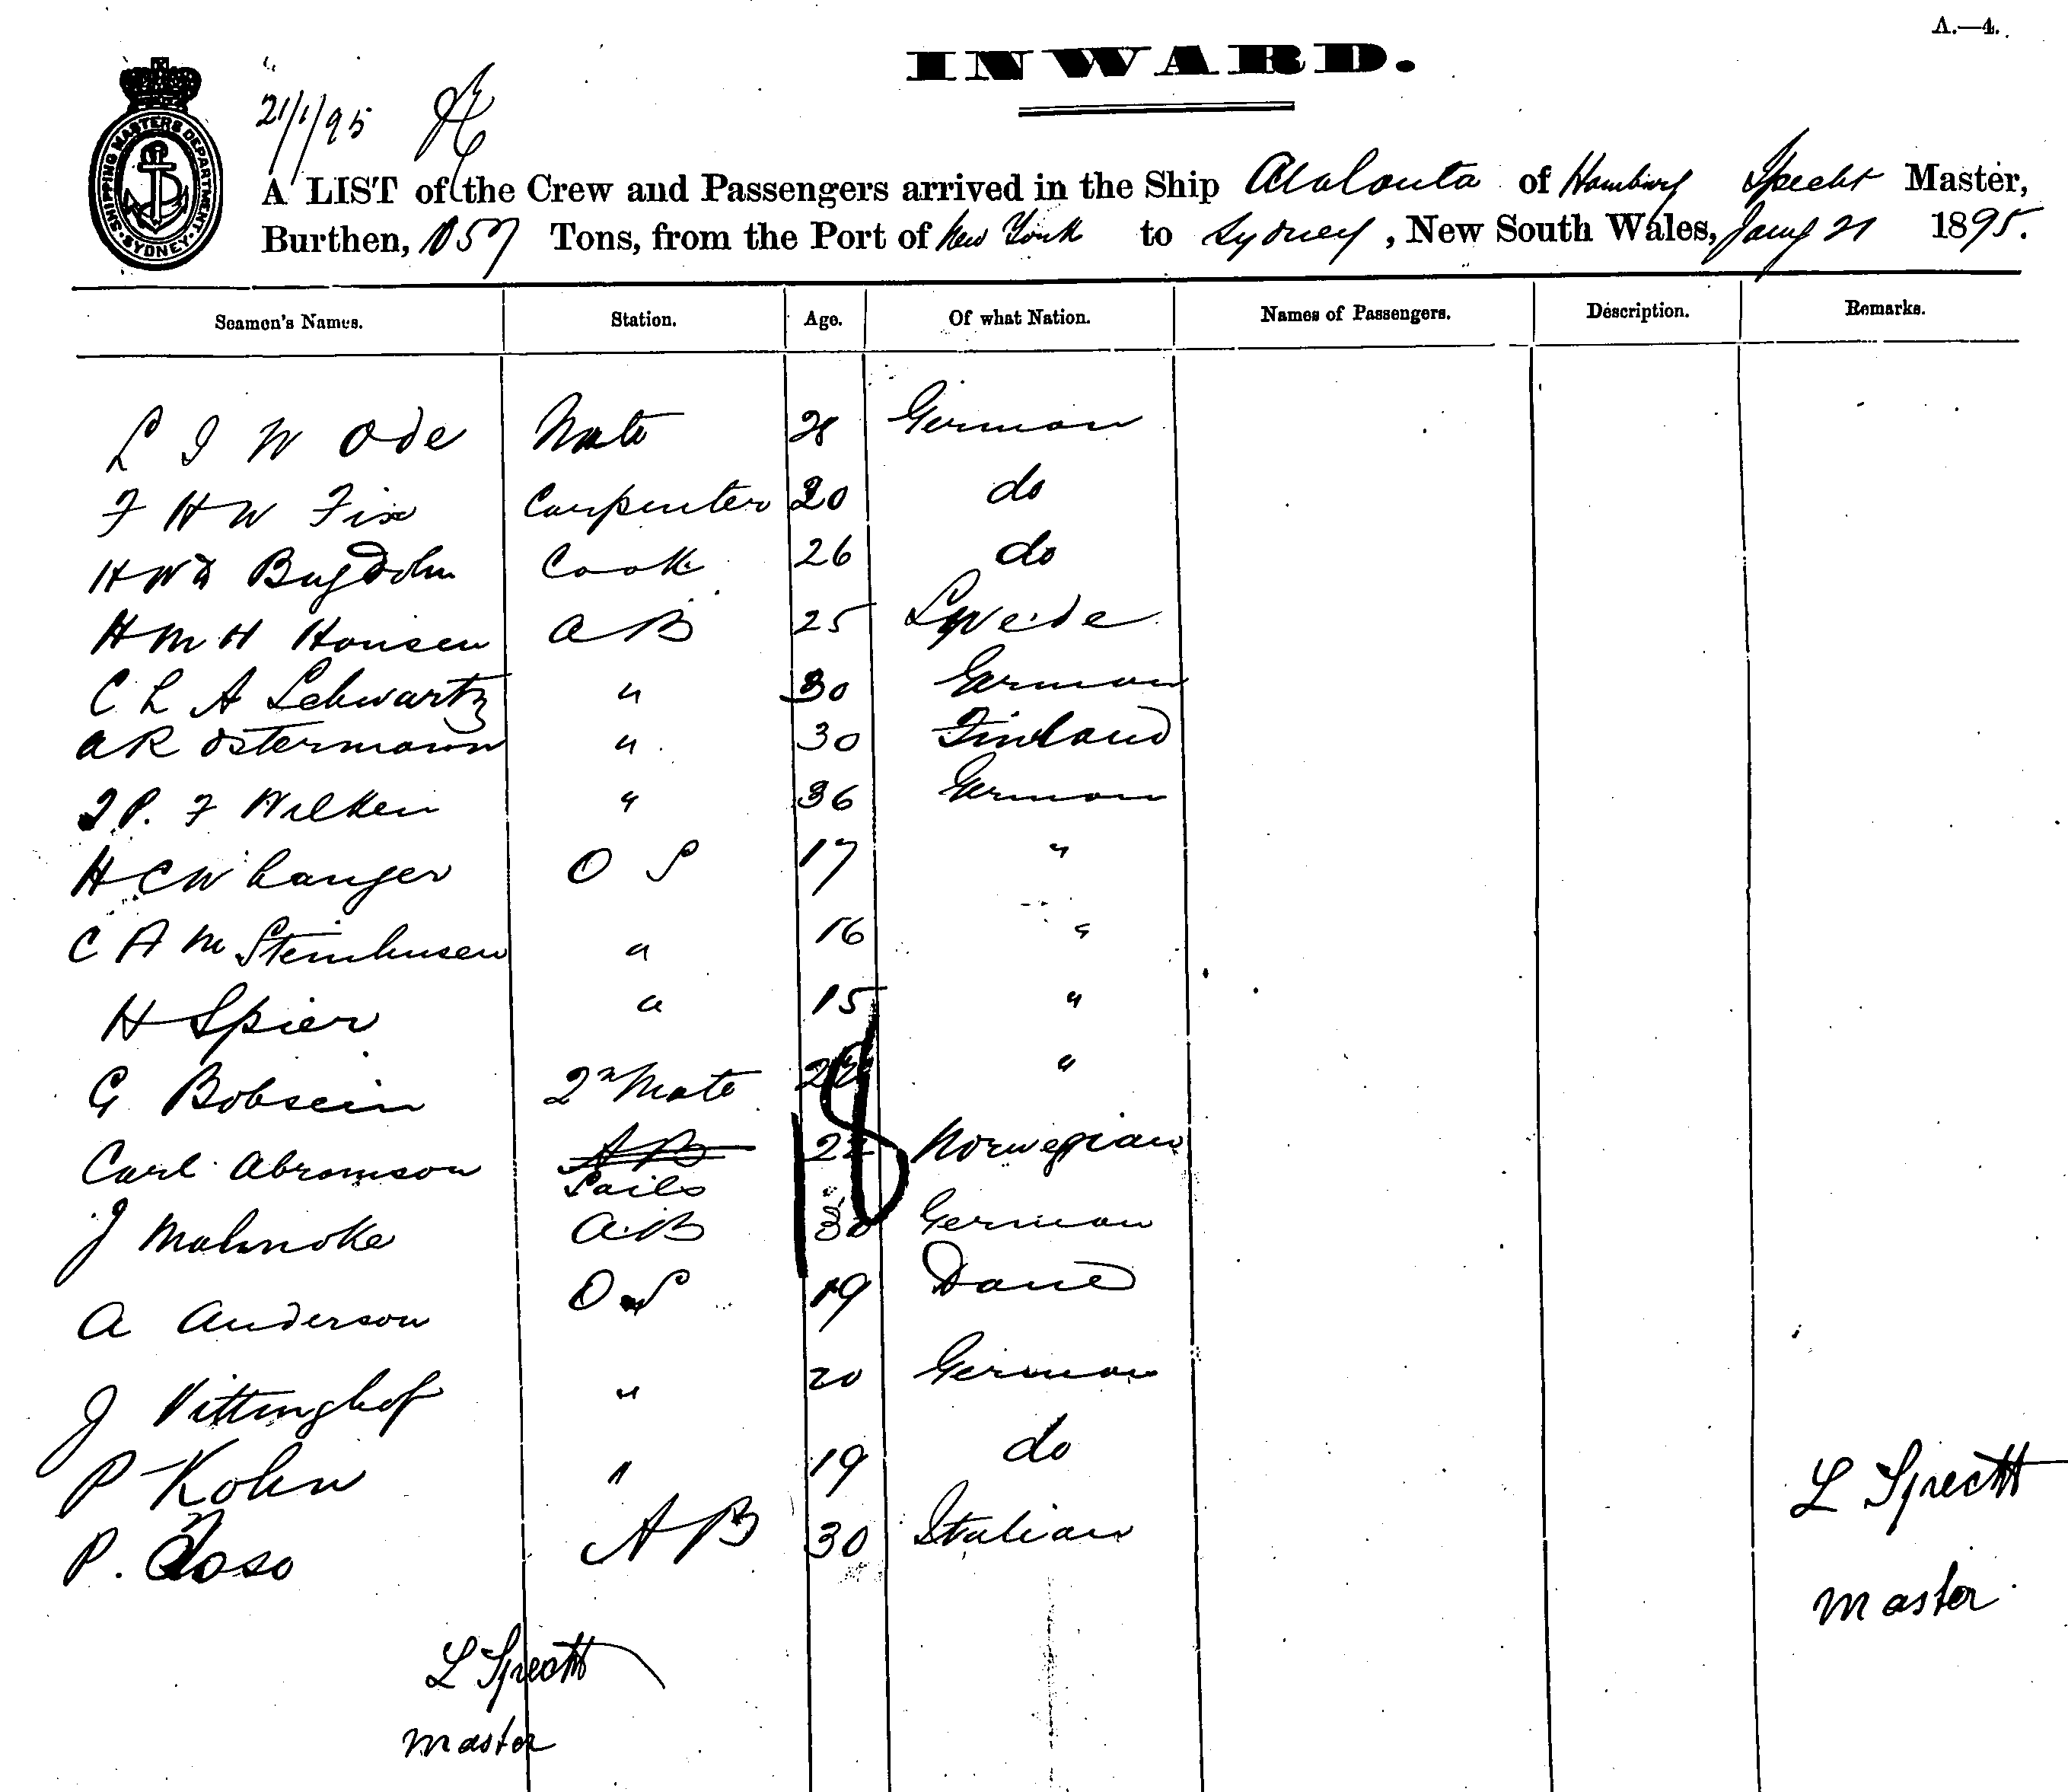 A.—4.
INWARD.
21/1/95
SHIPPING MASTERS DEPARTMENT. SYDNEY.
A LIST of the Crew and Passengers arrived in the Ship Atalanta of Hamburg Specht Master,
Burthen, 1057 Tons, from the Port of New York to Sydney, New South Wales, Jany 21 1895.
Seamen's Names. Station. Age. Of what Nation. Names of Passengers. Description. Remarks.
L J W Ode Mate 28 German
F H W Fix Carpenter 20 do
H W Bugdohn Cook 26 do
H M H Hansen A B 25 Swede
C L A Schwartz " 30 German
A R Ostermann " 30 Finland
J P. F Wilken " 36 German
H C W Langer O S 17 "
C A M Steinhusen " 16 "
H Spier " 15 "
G Bobsein 2n Mate "
18
Carl Abramson A B 22 Norwegian
Sails
J Mahnoke A.B 30 German
A Anderson O S 19 Dane
J Vittinghof " 20 German
P Kohn " 19 do
P. Toso A B 30 Italian
L Specht
Master
L Specht
Master